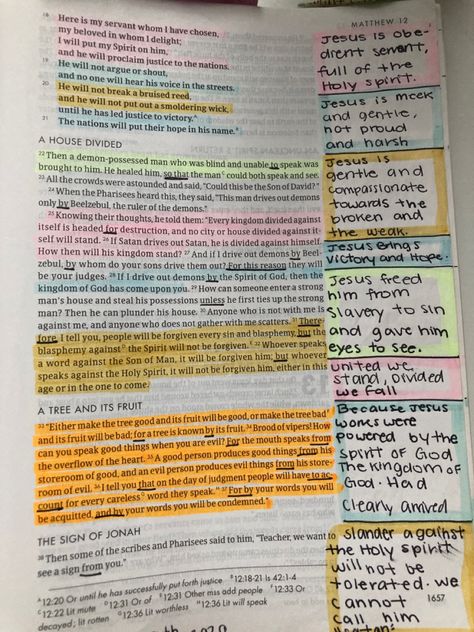 MATTHEW 12
18 Here is my servant whom I have chosen,
my beloved in whom I delight;
I will put my Spirit on him,
and he will proclaim justice to the nations.
19 He will not argue or shout,
and no one will hear his voice in the streets.
20 He will not break a bruised reed,
and he will not put out a smoldering wick,
until he has led justice to victory.A
21 The nations will put their hope in his name.B
A HOUSE DIVIDED
22 Then a demon-possessed man who was blind and unable to speak was
brought to him. He healed him, so that the manC could both speak and see.
23 All the crowds were astounded and said, "Could this be the Son of David?"
24 When the Pharisees heard this, they said, "This man drives out demons
only by Beelzebul, the ruler of the demons."
25 Knowing their thoughts, he told them: "Every kingdom divided against
itself is headed for destruction, and no city or house divided against it-
self will stand. 26 If Satan drives out Satan, he is divided against himself.
How then will his kingdom stand? 27 And if I drive out demons by Beel-
zebul, by whom do your sons drive them out? For this reason they will
be your judges. 28 If I drive out demons by the Spirit of God, then the
kingdom of God has come upon you. 29 How can someone enter a strong
man's house and steal his possessions unless he first ties up the strong
man? Then he can plunder his house. 30 Anyone who is not with me is
against me, and anyone who does not gather with me scatters. 31 There-
fore, I tell you, people will be forgiven every sin and blasphemy, but the
blasphemy against the Spirit will not be forgiven. 32 Whoever speaks
a word against the Son of Man, it will be forgiven him; but whoever
speaks against the Holy Spirit, it will not be forgiven him, either in this
age or in the one to come.
A TREE AND ITS FRUIT
33 "Either make the tree good and its fruit will be good, or make the tree bad
and its fruit will be bad; for a tree is known by its fruit. 34 Brood of vipers! How
can you speak good things when you are evil? For the mouth speaks from
the overflow of the heart. 35 A good person produces good things from his
storeroom of good, and an evil person produces evil things from his store-
room of evil. 36 I tell you that on the day of judgment people will have to ac-
count for every careless word they speak. 37 For by your words you will
be acquitted, and by your words you will be condemned."
THE SIGN OF JONAH
38 Then some of the scribes and Pharisees said to him, "Teacher, we want to
see a sign from you."
A 12:20 Or until he has successfully put forth justice B 12:18-21 Is 42:1-4
C 12:22 Lit mute D 12:31 Or of E 12:31 Other mss add people F 12:33 Or
decayed; lit rotten G 12:36 Lit worthless H 12:36 Lit will speak
1657
Jesus is obe-
dient servant,
full of the
Holy spirit.
Jesus is meek
and gentle,
not proud
and harsh
Jesus is
gentle and
compassionate
towards the
broken and
the weak.
Jesus brings
victory and Hope.
Jesus freed
him from
slavery to sin
and gave him
eyes to see.
united we
stand, divided
we fall
Because Jesus
works were
powered by the
spirit of God
The kingdom of
God. Had
clearly arrived
slander against
the Holy spirit
will not be
tolerated. we
cannot
call him